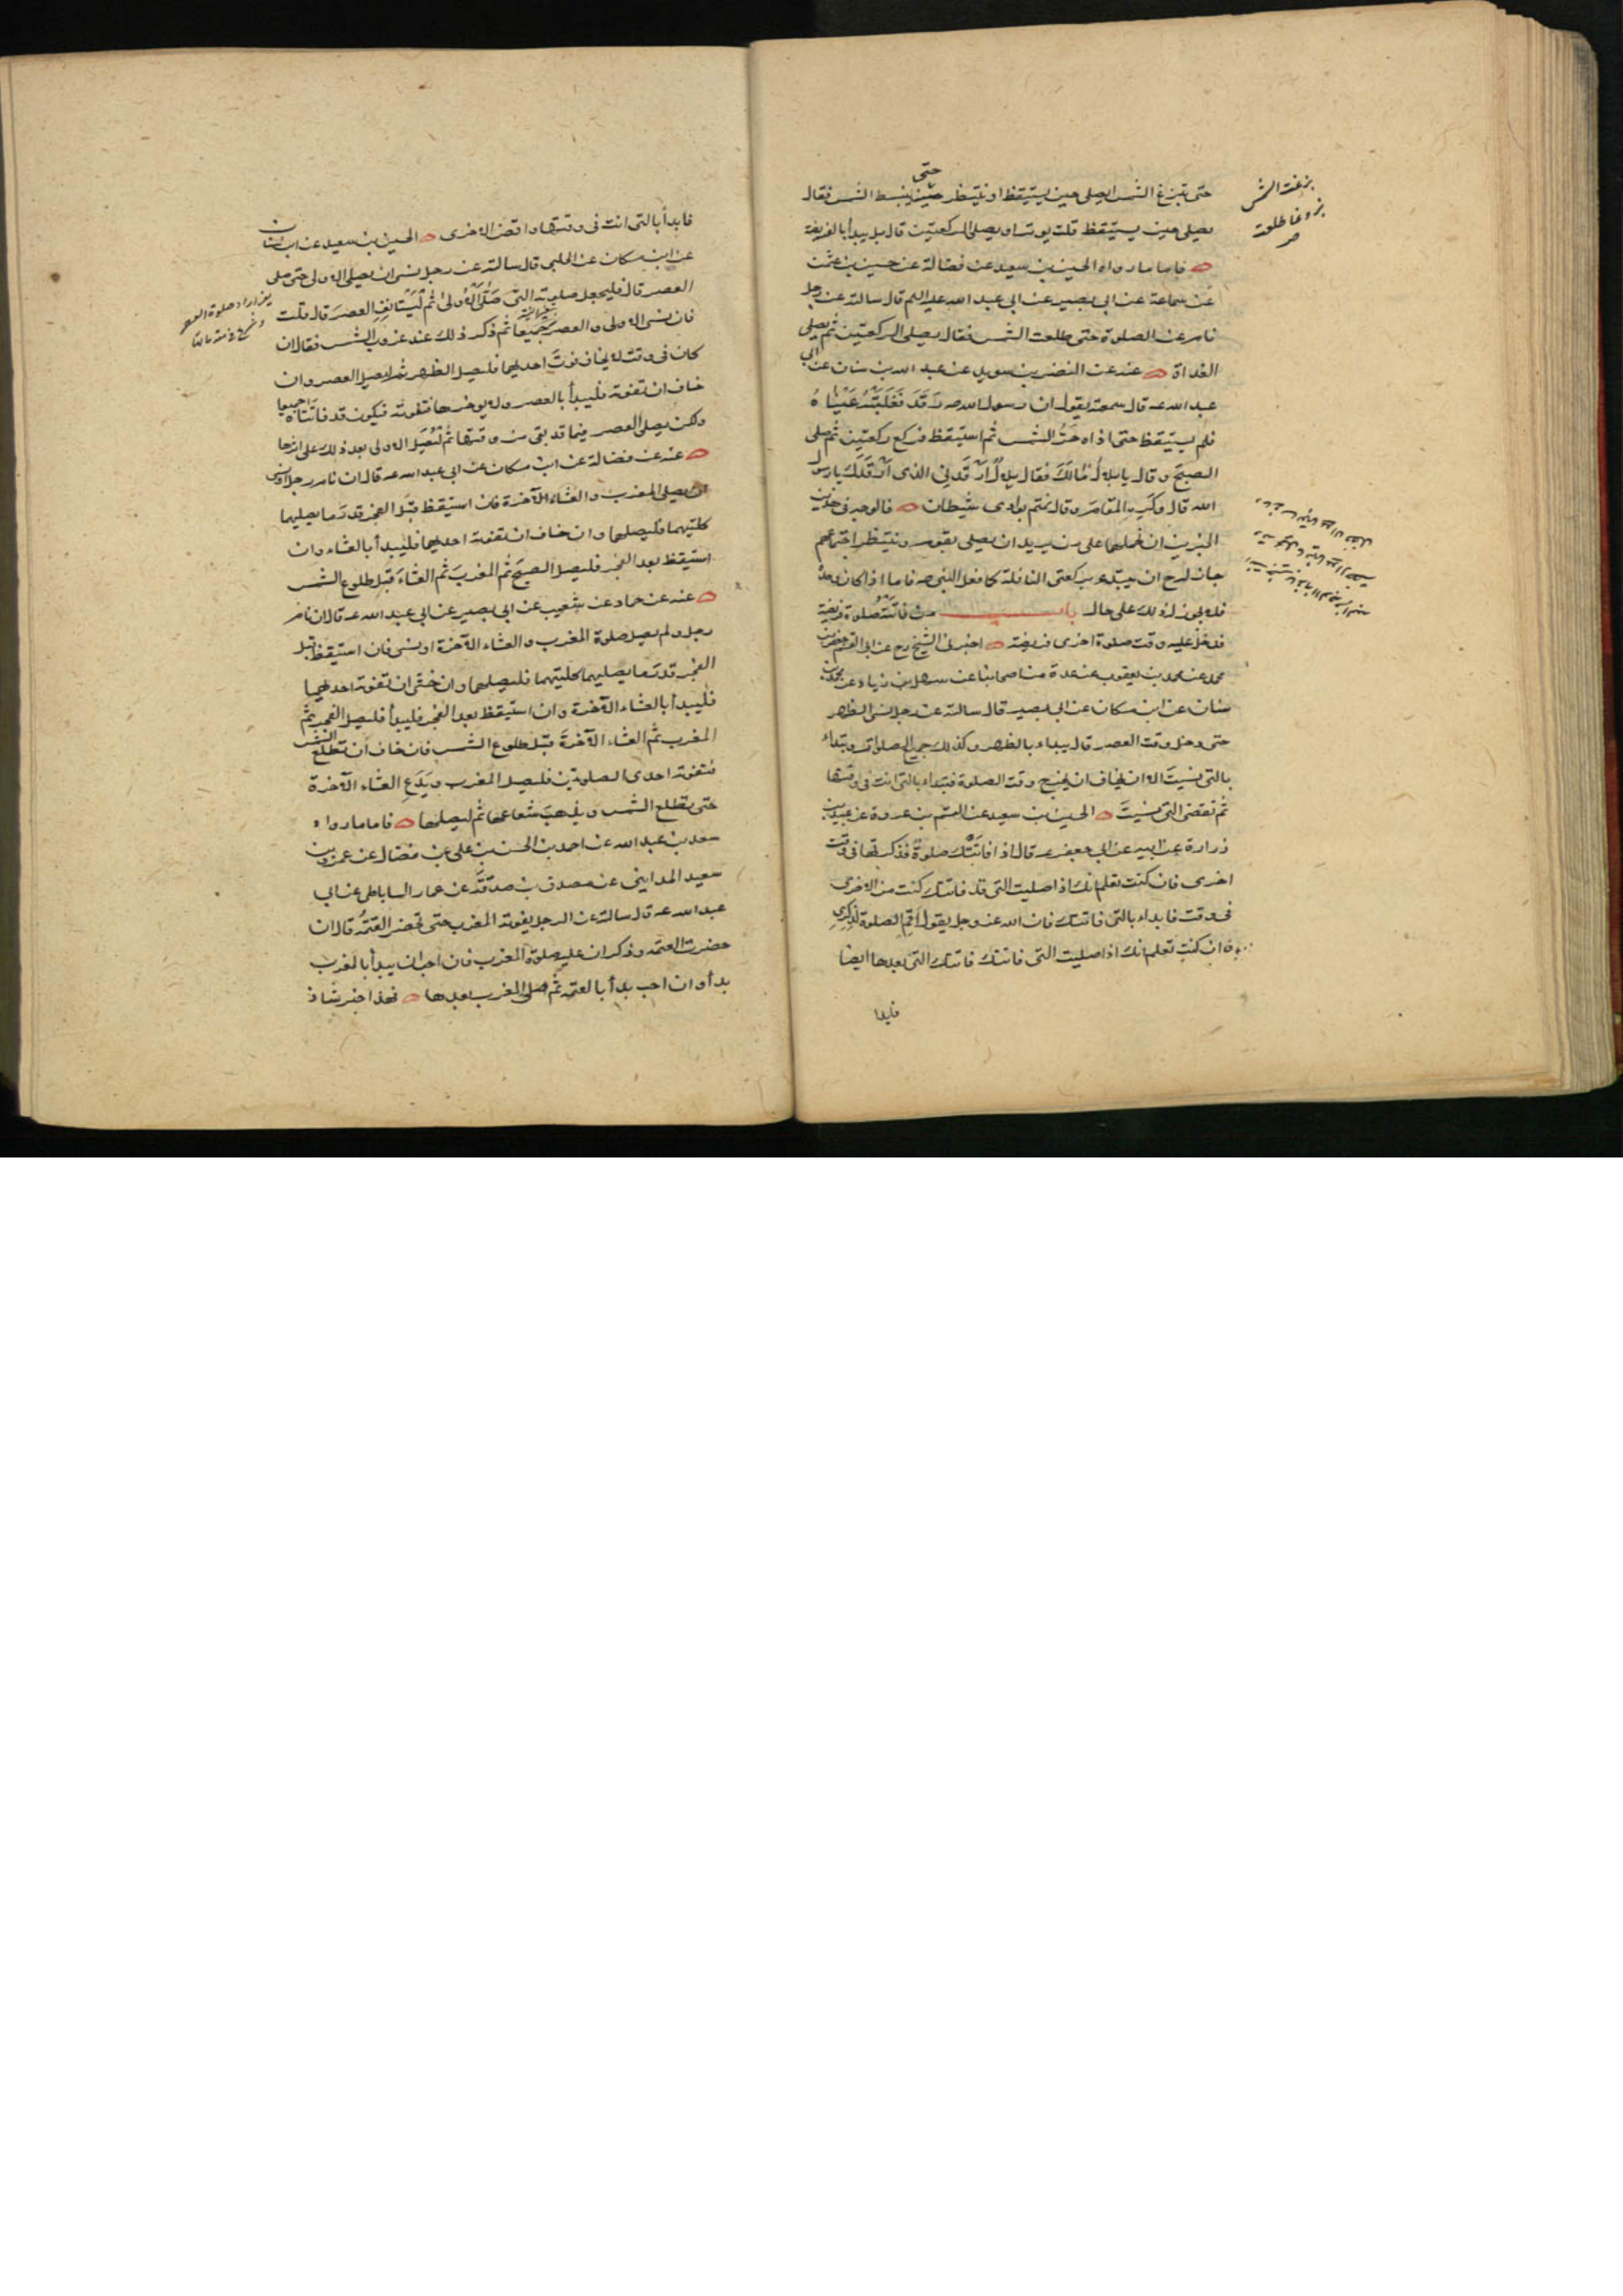 حتى تبزغ الشمس ايصلى حين يستيقظ او ينتظر حتى تنبسط الشمس فقال
يصلى حين يستيقظ قلت يوتر او يصلى الركعتين قال بل يبدأ بالفريضة
فاما ما رواه الحسين بن سعيد عن فضالة عن حسين بن عثمن
عن سماعة عن ابى بصير عن ابى عبد الله عليه السلم قال سالته عن رجل
نام عن الصلوة حتى طلعت الشمس فقال يصلى الركعتين ثم يصلى
الغداة عنه عن النضر بن سويد عن عبد الله بن سنان عن ابى
عبد الله عه قال سمعته يقول ان رسول الله صه رَقَدَ فَغَلَبَتْهُ عَيْنَاهُ
فلم يستيقظ حتى اذاه حَرُّ الشمس ثم استيقظ فركع ركعتين ثم صلى
الصبحَ و قال يا بلال مَالَكَ فقال بلال ارقدنى الذى ارقدك يا رسول
الله قال و كره المقامَ و قال نمتم بوادى شيطان فالوجه فى هذين
الخبرين ان نحملهما على من يريد ان يصلى بقوم و ينتظر اجتماعهم
جاز له ح ان يبتدى بركعتى النافلة كما فعل النبى صه فاما اذا كان وحده
فلا يجوز له ذلك على حال باب من فاتته صلوة فريضة
فدخل عليه وقت صلوة اخرى فريضة اخبرنى الشيخ رح عن ابى القسم جعفر بن
محمد عن محمد بن يعقوب عن عدة من اصحابنا عن سهل بن زياد عن محمد بن
سنان عن ابن مسكان عن ابى بصير قال سالته عن رجل نسى الظهر
حتى دخل وقت العصر قال يبداء بالظهر و كذلك جميع الصلوات و يبتداء
بالتى نسيتَ الا ان يخاف ان يخرج وقت الصلوة فتبداء بالتى انت فى وقتها
ثم تقضى التى نسيتَ الحسين بن سعيد عن القسم بن عروة عن عبيد بن
زرارة عن ابيه عن ابى جعفر عه قال اذا فاتَتْكَ صلوةٌ فذكرتها فى وقت
اخرى فان كنت تعلم انك اذا صليت التى قد فاتتك كنت من الاخرى
فى وقت فابداء بالتى فاتتك فان الله عز و جل يقول اَقِمِ الصلوة لِذِكرى
و ان كنت تعلم انك اذا صليت التى فاتتك فاتتك التى بعدها ايضا
فابدا
بزغت الشمس
بزوغا طلعت
فابدأ بالتى انت فى وقتها و اقض الاخرى الحسين بن سعيد عن ابن سنان
عن ابن مسكان عن الحلبى قال سالته عن رجل نسى ان يصلى الاولى حتى صلى
العصر قال فليجعل صلوته التى صَلَّى الاولى ثم لْيَستانِفِ العصرَ قال قلت
فان نسى الاولى و العصر جميعًا ثم ذكر ذلك عند غروب الشمس فقال ان
كان فى وقت لا يخاف فوتَ احديهما فليصل الظهر ثم ليصل العصر و ان
خاف ان تفوته فليبدأ بالعصر و لا يوخرها فتفوته فيكون قد فاتتاه جميعا
ولكن يصلى العصر فيما قد بقى من وقتها ثم لْيُصَلِّ الاولى بعد ذلك على اثرها
عنه عن فضالة عن ابن مسكان عن ابى عبد الله عه قال ان نام رجل او نسى
ان يصلى المغرب و العشاء الآخرة فان استيقظ قبل الفجر قدرَ ما يصليهما
كلتيهما فليصلهما و ان خاف ان تفوته احديهما فليبدأ بالعشاء و ان
استيقظ بعد الفجر فليصل الصبحَ ثم المغربَ ثم العشاءَ قبل طلوع الشمس
عنه عن حماد عن شعيب عن ابى بصير عن ابى عبد الله عه قال ان نام
رجل و لم يصل صلوة المغرب و العشاء الآخرة او نسى فان استيقظ قبل
الفجر قدرَ ما يصليهما كلتيهما فليصلهما و ان خشى ان تفوته احديهما
فليبدأ بالعشاء الآخرة و ان استيقظ بعد الفجر فليبدأ فليصل الفجر ثم
المغرب ثم العشاء الآخرةَ قبل طلوع الشمس فان خاف ان تطلع الشمس
فتفوته احدى الصلوتين فليصل المغرب و يَدَعِ العشاء الآخرة
حتى تطلع الشمس و يذهبَ شعاعها ثم ليصلها فاما ما رواه
سعد بن عبد الله عن احمد بن الحسن بن على بن فضال عن عمرو بن
سعيد المداينى عن مصدق بن صدقة عن عمار الساباطى عن ابى
عبد الله عه قال سالته عن الرجل يفوته المغرب حتى تحضر العَتَمَةُ قال ان
حضرت العتمة و ذكر ان عليه صلوة المغرب فان احب ان يبدأ بالمغرب
بدأ و ان احب بدأ بالعتمة ثم صلى المغرب بعدها فهذا خبر شاذ